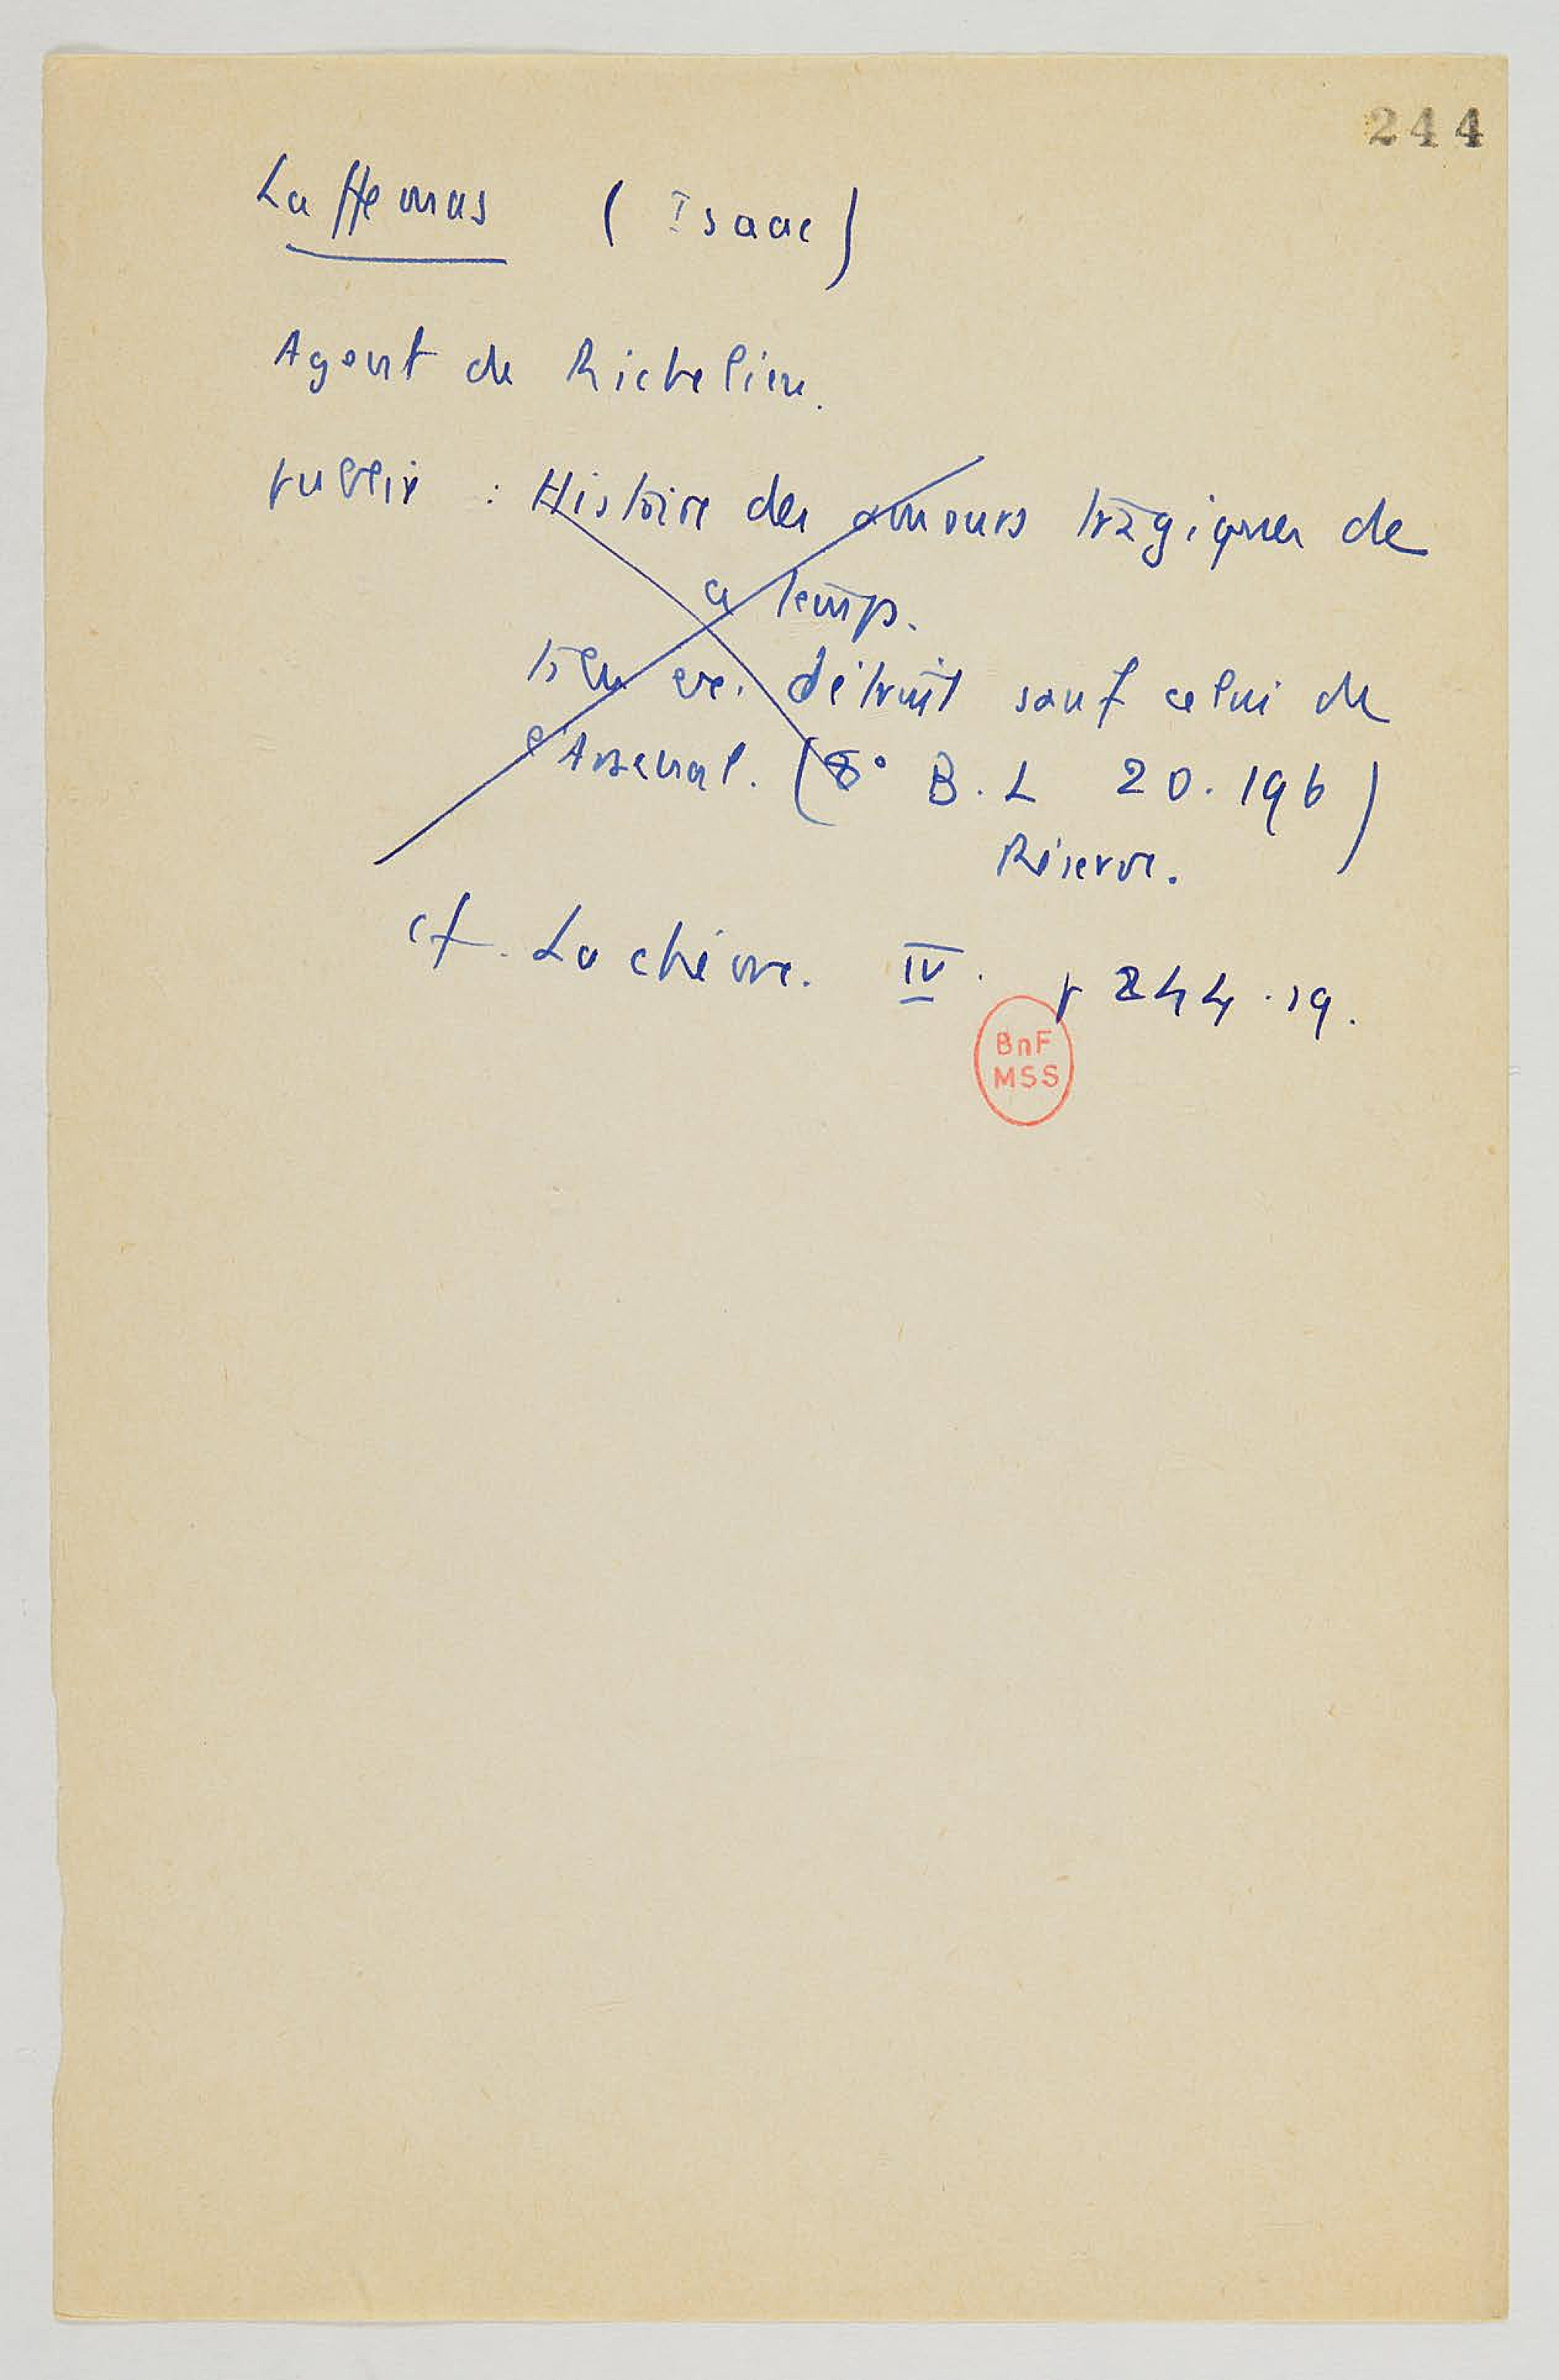 244
Laffemas (Isaac)
Agent de Richelieu.
publie : Histoire des amours tragiques de
ce temps.
tous ex. détruit sauf celui de
l'Arsenal. (8° B. L 20.196)
Réserve.
cf. Lachèvre. IV. p 244.19.
BnF
MSS